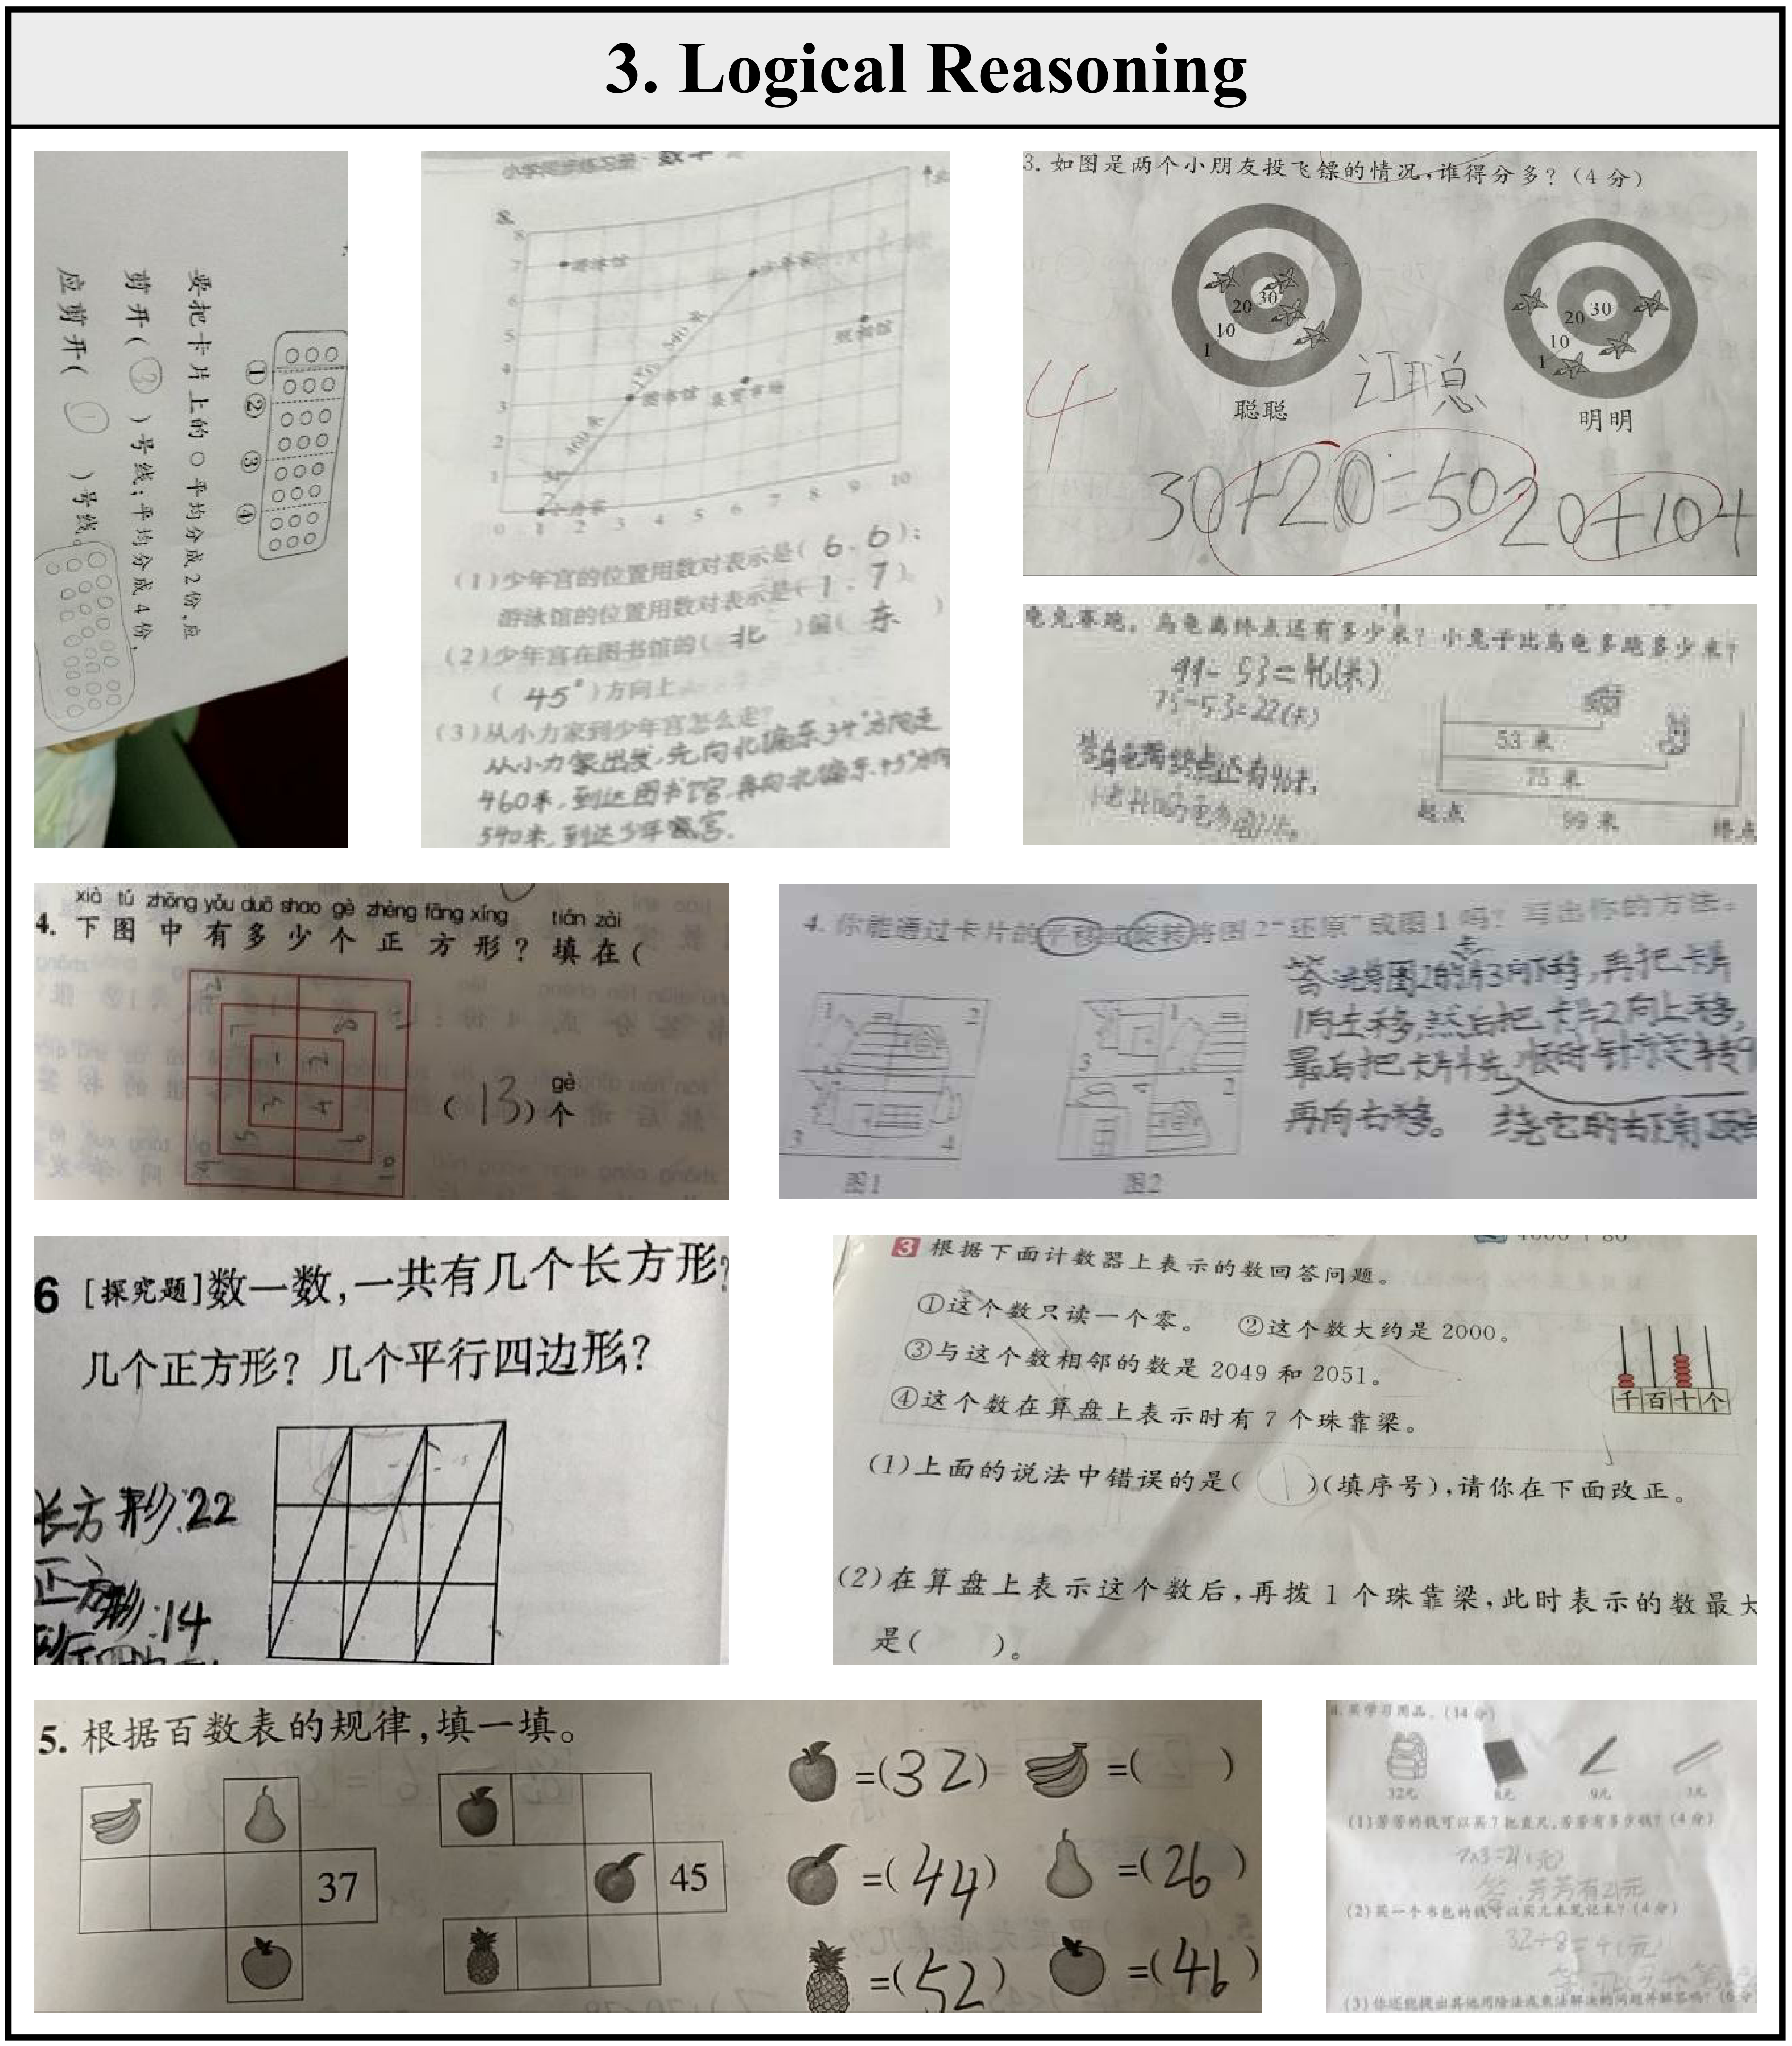 3. Logical Reasoning
①
②
③
④
要把卡片上的○平均分成2份,应
剪开(③)号线;平均分成4份,
应剪开(①)号线。
8.
8
7
6
5
4
3
2
1
0 1 2 3 4 5 6 7 8 9 10
460米
540米
图书馆
(1)少年宫的位置用数对表示是(6.6);
游泳馆的位置用数对表示是(1.7)。
(2)少年宫在图书馆的(北)偏(东)
(45°)方向上
(3)从小力家到少年宫怎么走?
从小力家出发,先向北偏东34°方向走
460米,到达图书馆,再向北偏东45°方向
540米,到达少年宫.
3. 如图是两个小朋友投飞镖的情况,谁得分多?(4分)
30
20
10
1
30
20
10
1
聪聪
明明
4
30+20=50
20+10+
龟兔赛跑。乌龟离终点还有多少米?小兔子比乌龟多跑多少米?
99-53=46(米)
75-53=22(米)
53 米
75 米
99 米
起点
终点
xià tú zhōng yǒu duō shao gè zhèng fāng xíng tián zài
4. 下图中有多少个正方形?填在(
gè
(13)个
4. 你能通过卡片的平移或旋转将图2“还原”成图1吗?写出你的方法。
1 2
3 4
3 1
4 2
图1
图2
1向左移,然后把卡片2向上移,
最后把卡片4先顺时针方向转9
再向右移。 绕它的右下角顶点
6 [探究题]数一数,一共有几个长方形?
几个正方形?几个平行四边形?
长方形:22
正方形:14
3 根据下面计数器上表示的数回答问题。
①这个数只读一个零。 ②这个数大约是2000。
③与这个数相邻的数是2049和2051。
④这个数在算盘上表示时有7个珠靠梁。
千百十个
(1)上面的说法中错误的是(1)(填序号),请你在下面改正。
(2)在算盘上表示这个数后,再拨1个珠靠梁,此时表示的数最大
是( )。
5. 根据百数表的规律,填一填。
37
45
=(32) =( )
=(44) =(26)
=(52) =(46)
4. 买学习用品。(14分)
32元 8元 9元 3元
(1)芳芳的钱可以买7把直尺,芳芳有多少钱?(4分)
7×3=21(元)
答:芳芳有21元
(2)买一个书包的钱可以买几本笔记本?(4分)
32÷8=4(元)
(3)你还能提出其他用除法或乘法解决的问题并解答吗?(6分